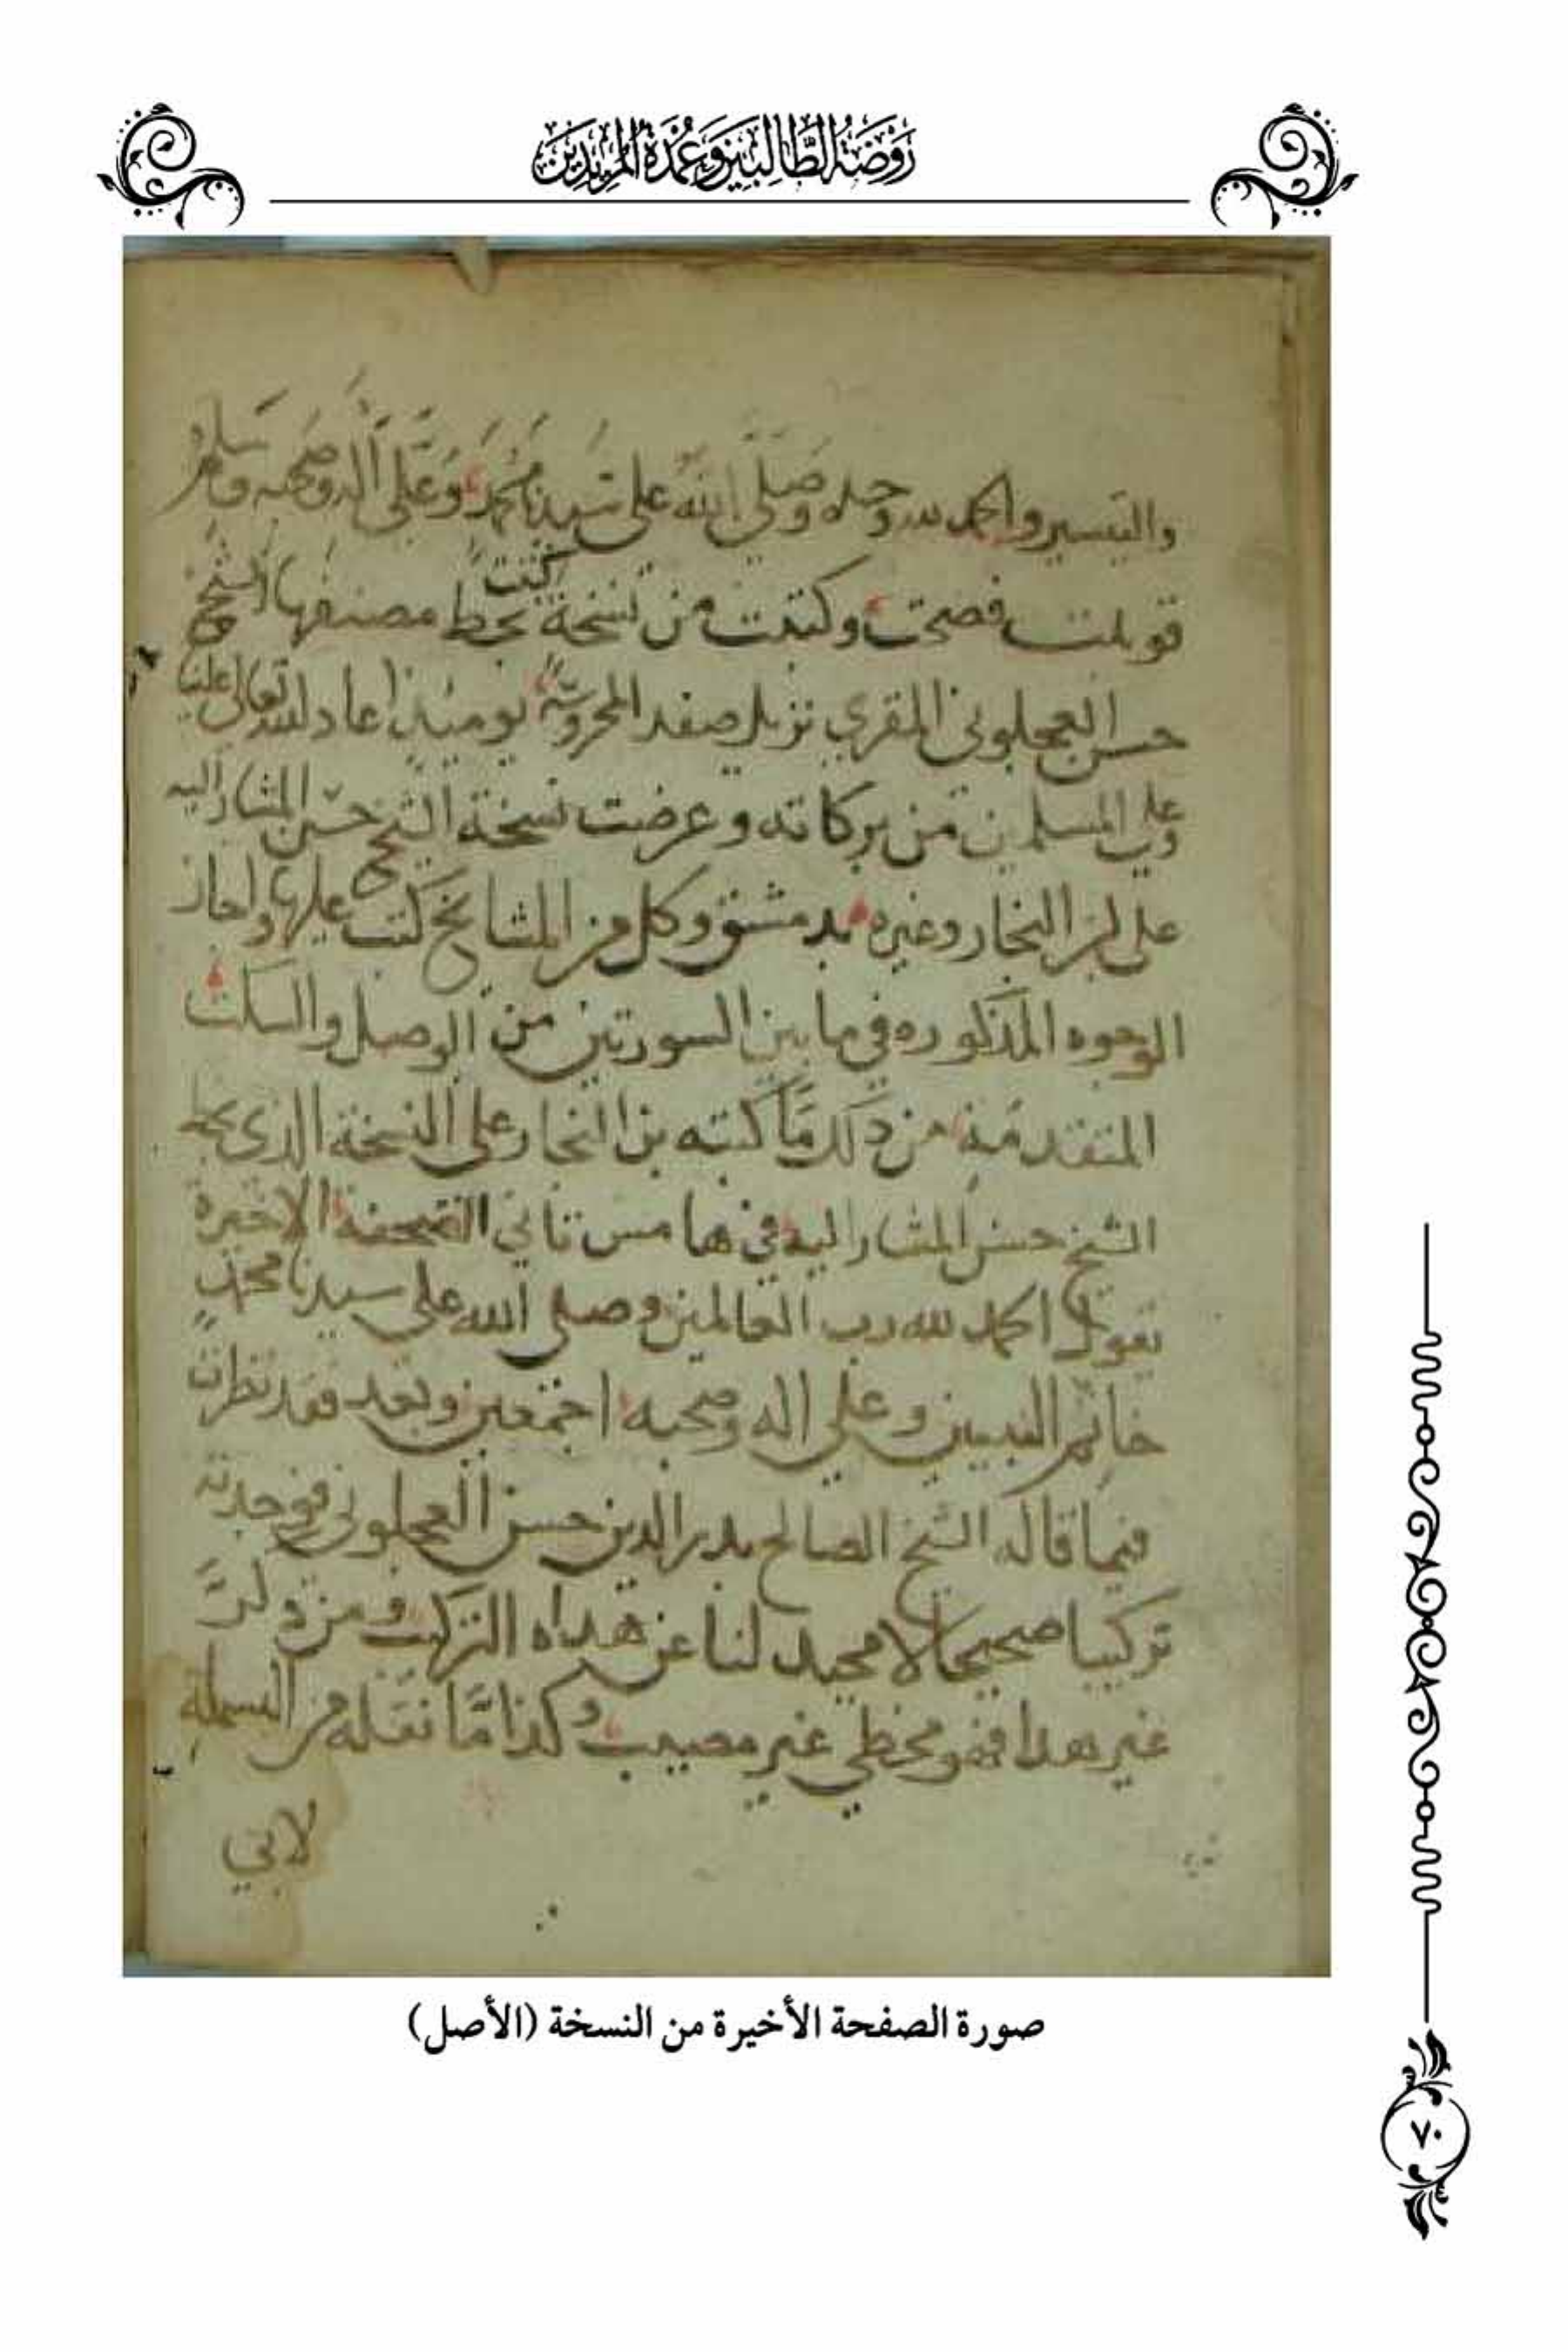 رَوْضَةُ الطَّالِبِينَ وَعُمْدَةُ المُرِيدِينَ
والتيسير والحمد لله وحده وصلى الله على سيدنا محمد وعلى اله وصحبه وسلم
قوبلت فصحت وكتبت من نسخة كتبت بخط مصنفها الشيخ
حسن العجلوني المقري نزيل صفد المحروسة يوميذ اعاد الله تعالى علينا
وعلى المسلمين من بركاته وعرضت نسخة الشيخ حسن المشار اليه
على بن النجار وغيره بدمشق وكل من المشايخ كتب عليها واجاز
الوجوه المذكوره في ما بين السورتين من الوصل والسكت
المتقدمة من ذلك ما كتبه بن النجار على النسخة الذي بخط
الشيخ حسن المشار اليه في هامس تاني الصحفة الاخيرة
يقول الحمد لله رب العالمين وصلى الله على سيدنا محمد
خاتم النبيين وعلى اله وصحبه اجمعين وبعد فقد نظرت
فيما قاله الشيخ الصالح بدر الدين حسن العجلوني فوجدته
تركيبا صحيحا لا محيد لنا عن هداه التركيب ومن
غير هدا فهو مخطي غير مصيب وكذا ما نقله من البسملة
لابي
صورة الصفحة الأخيرة من النسخة (الأصل)
٧٠